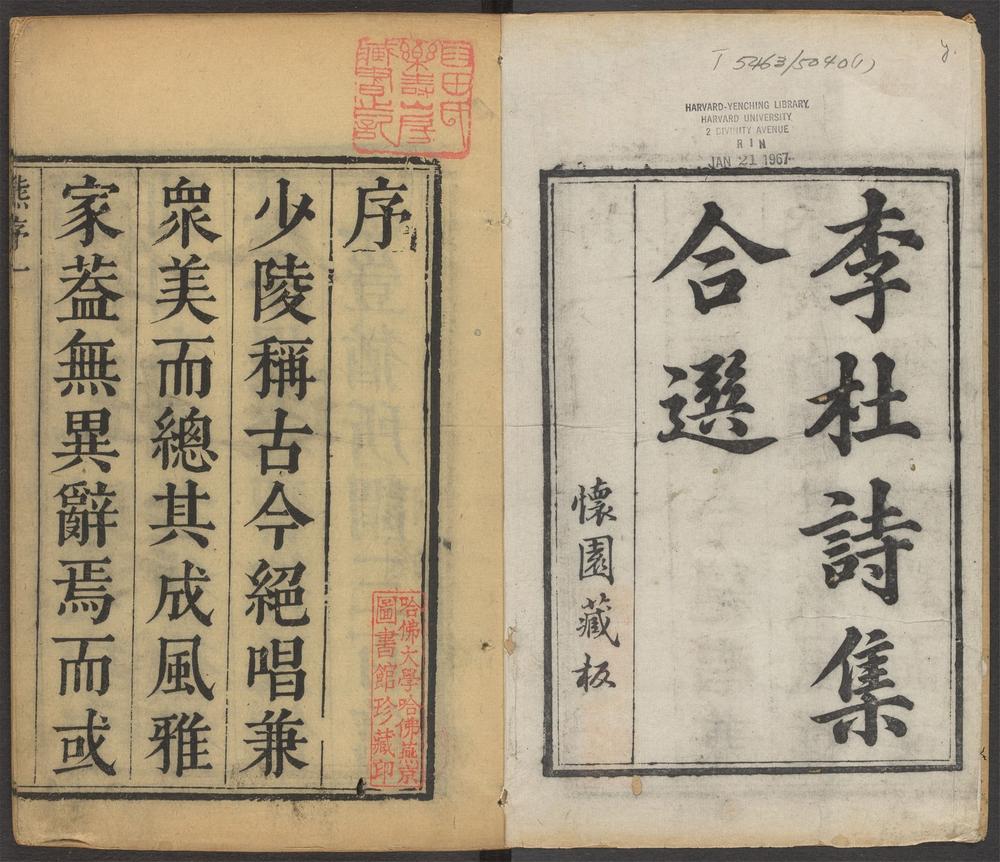 T 5463/5040(1)
HARVARD-YENCHING LIBRARY
HARVARD UNIVERSITY
2 DIVINITY AVENUE
JAN 21 1967
李杜詩集
合選
懷園藏板
序
少陵稱古今絕唱兼
衆美而總其成風雅
家葢無異辭焉而或
熊序 一
田氏
樂壽山房
藏書記
哈佛大學哈佛燕京
圖書館珍藏印